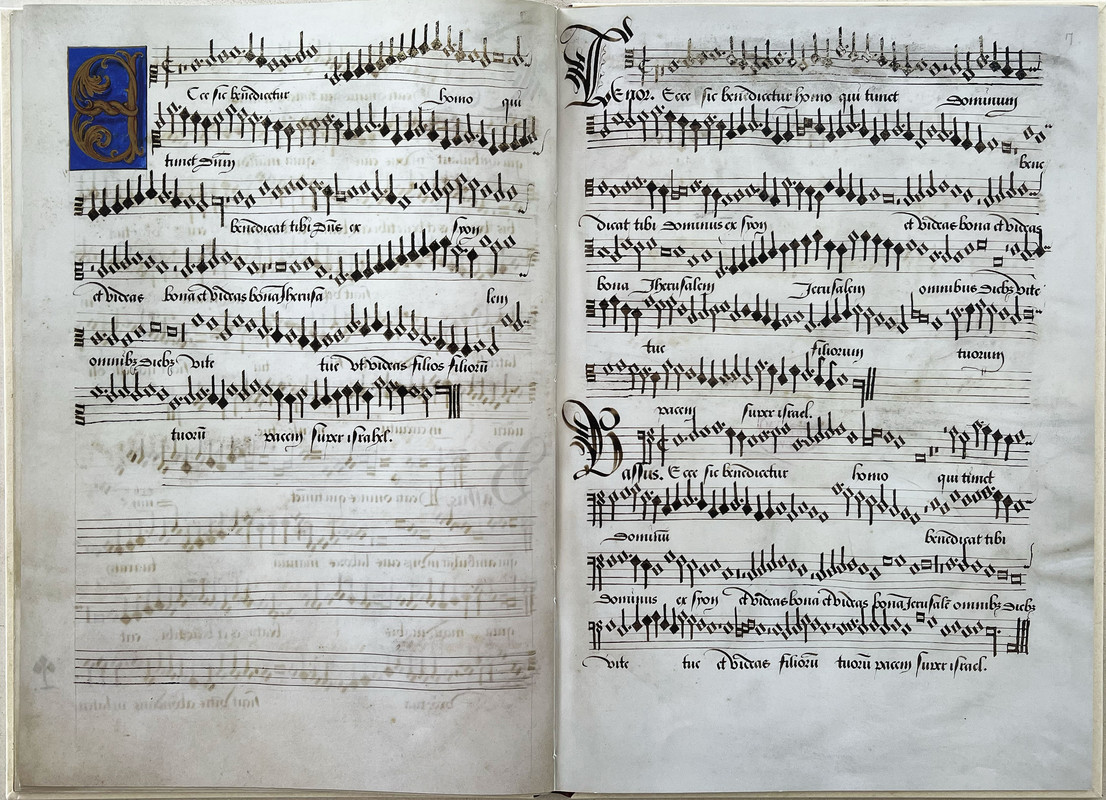 Ecce sic benedicetur homo qui
timet Dnm
benedicat tibi Dns ex syon
et videas bona et videas bona Jherusa lem
omnibz diebz vite tue vt videas filios filiorū
tuorū pacem super israhel.
Tenor. Ecce sic benedicetur homo qui timet Dominum
bene
dicat tibi Dominus ex syon et videas bona et videas
bona Jherusalem Jerusalem omnibus diebz vite
tue filiorum tuorum
pacem super israel.
17
Bassus. Ecce sic benedicetur homo qui timet
Dominū benedicat tibi
Dominus ex syon et videas bona et videas bona Jerusalē omnibz diebz
vite tue et videas filiorū tuorū pacem super israel.